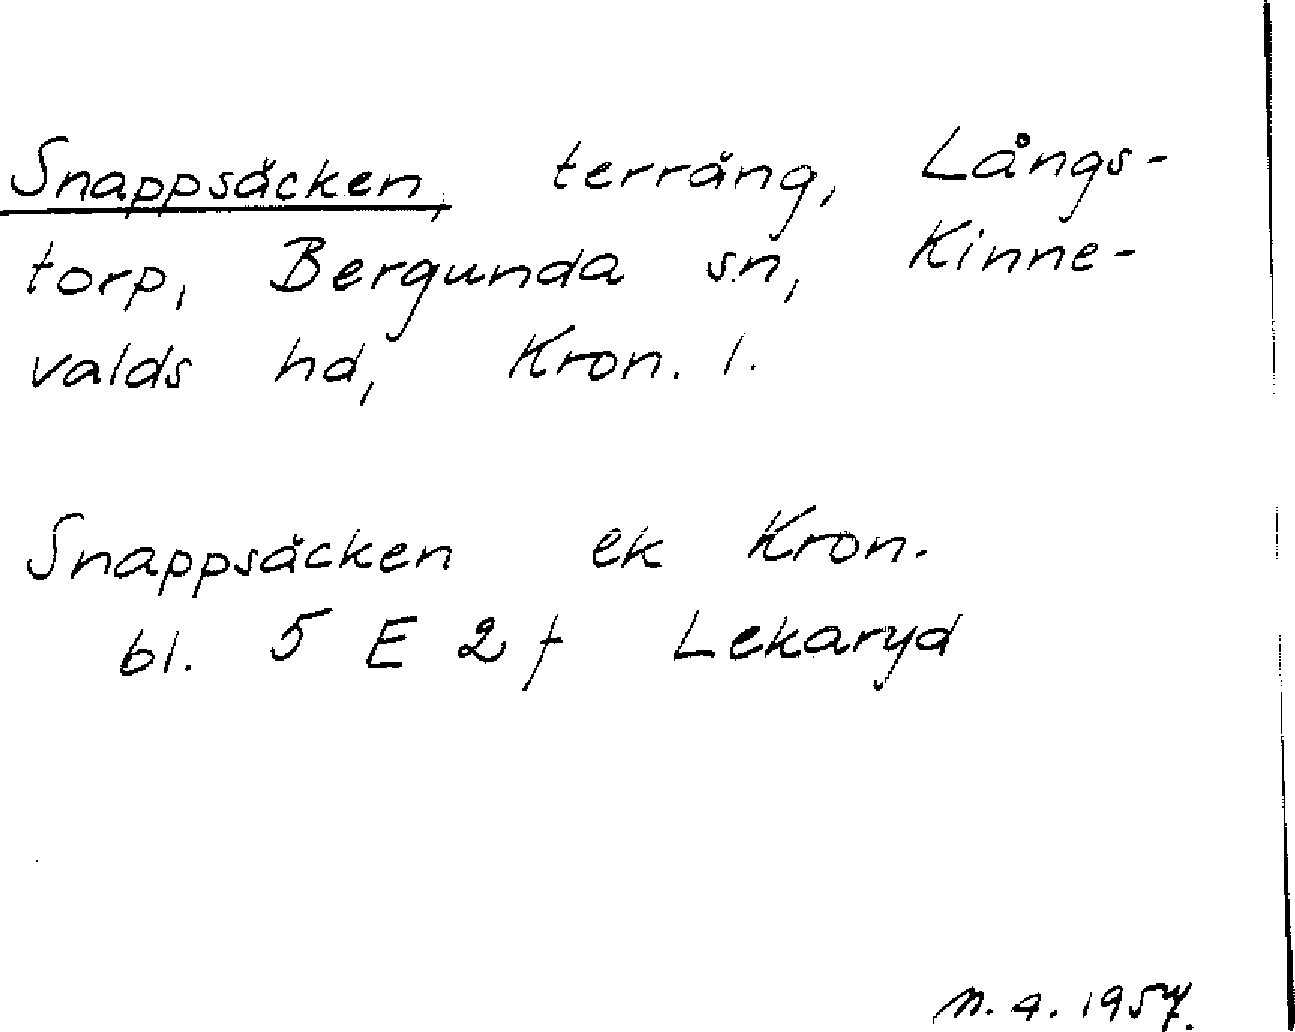 Snappsäcken, terräng, Långs-
torp, Bergunda sn, Kinne-
valds hd, Kron. l.
Snappsäcken ek Kron.
bl. 5 E 2 f Lekaryd
n. a. 1957.